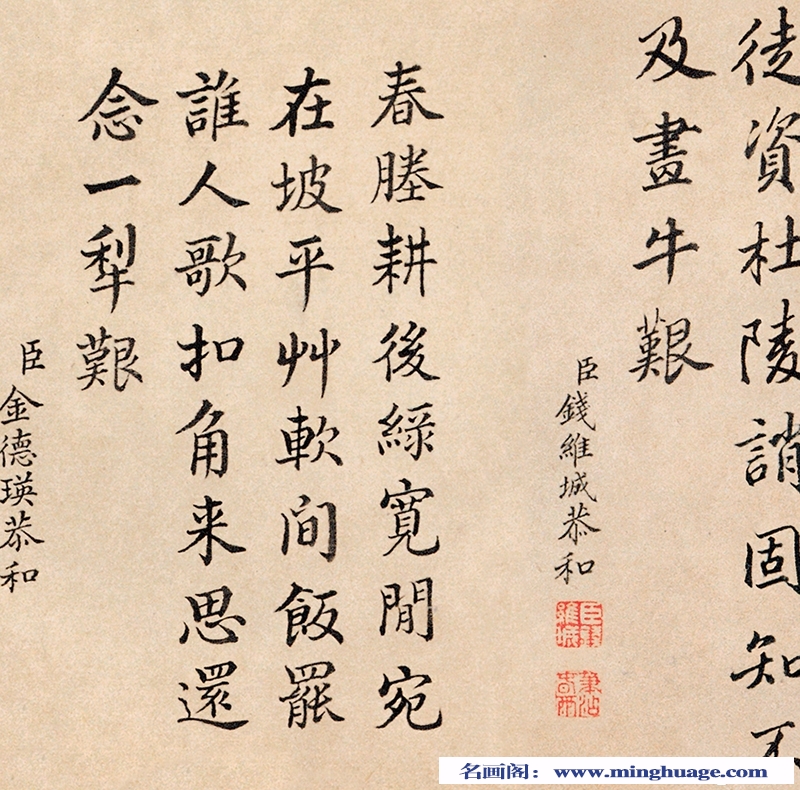 徒資杜陵誚固知不
及畫牛艱
臣錢維城恭和
筆沾春雨
春塍耕後綠寬閒宛
在坡平艸軟間飯罷
誰人歌扣角来思還
念一犁艱
臣金德瑛恭和
名画阁：www.minghuage.com